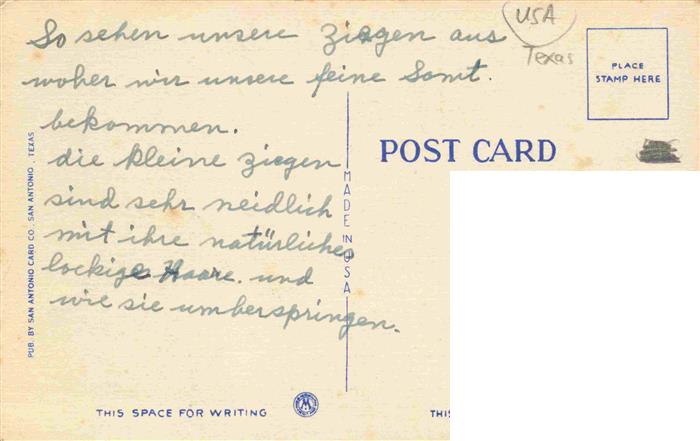 So sehen unsere Ziegen aus
woher wir unsere feine Samt.
bekommen.
die kleine Ziegen
sind sehr neidlich
mit ihre natürliches
lockiges Haare. und
wie sie umberspringen.
USA
Texas
PLACE
STAMP HERE
POST CARD
MADE IN USA
PUB. BY SAN ANTONIO CARD CO., SAN ANTONIO, TEXAS
THIS SPACE FOR WRITING
THIS